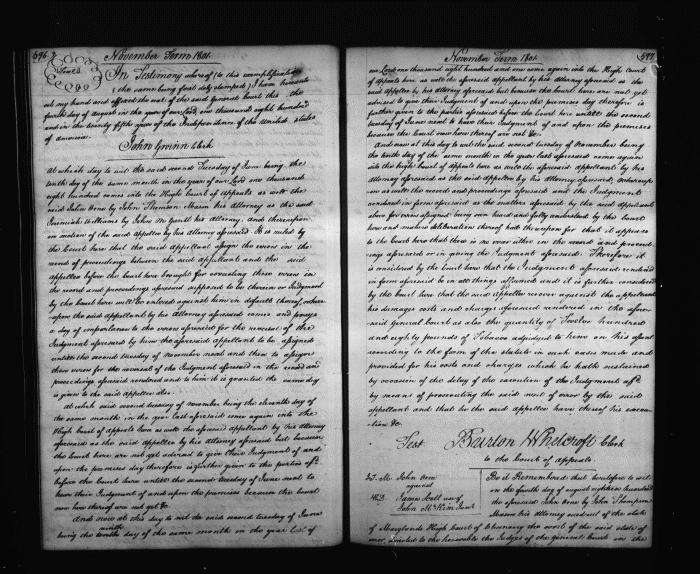 596
November Term 1801.
Seal
In Testimony whereof (to this exemplification
the same being first duly stamped) I have hereunto
set my hand and affixed the seal of the said general Court this the
fourth day of august in the year of our Lord one thousand eight hundred
and in the twenty fifth year of the Independence of the United states
of america.
John Gwinn Clerk
At which day to wit the said second Tuesday of June being the
tenth day of the same month in the year of our Lord one thousand
eight hundred comes into the High Court of appeals as well the
said John Orme by John Thomson Mason his Attorney as the said
Jeremiah Williams by John his Attorney. And thereupon
on motion of the said appellee by his attorney aforesaid It is ruled by
the Court here that the said appellant assign the errors in the
record of proceedings between the said appellant and the said
appellee before the court here brought for correcting those errors in
the record and proceedings aforesaid supposed to be therein or Judgment
by the court here will be entered against him in default thereof, where
upon the said appellant by his Attorney aforesaid comes and prays
a day of imparlance to the errors aforesaid for the reversal of the
Judgment aforesaid by him the aforesaid appellant to be assigned
untill the second tuesday of November next and then to assign
these errors for the reversal of the Judgment aforesaid in the record and
proceedings aforesaid rendered and to him it is granted the same day
is given to the said appellee also.
At which said second tuesday of november being the eleventh day of
the same month in the year last aforesaid come again into the
High Court of appeals here as well the aforesaid appellant by his Attorney
aforesaid as the said appellee by his attorney aforesaid but because
the Court here are not yet advised to give their Judgment of and
upon the premises day therefore is further given to the parties afd.
before the Court here untill the second tuesday of June next to
hear their Judgment of and upon the premises because the Court
now here thereof are not yet &c.
And now at this day to wit the said second tuesday of June
being the ninth day of the same month in the year last of
597
November Term 1801.
our Lord one thousand eight hundred and one come again into the High Court
of appeals here as well the aforesaid appellant by his attorney aforesaid as the
said appellee by his attorney aforesaid but because the court here are not yet
advised to give their Judgment of and upon the premises day therefore is
further given to the parties aforesaid before the Court here untill the second
tuesday of June next to hear their Judgment of and upon the premises
because the Court now here thereof are not &c.
And now at this day to wit the said second tuesday of November being
the tenth day of the same month in the year last aforesaid come again
into the high Court of appeals here as well the aforesaid appellant by his
attorney aforesaid as the said appellee by his attorney aforesaid, whereup
on as well the record and proceedings aforesaid and the Judgment
rendered in form aforesaid as the matters aforesaid by the said appellant
above for errors assigned being seen heard and fully understood by the Court
here and mature deliberation thereof had thereupon for that it appears
to the Court here that there is no error either in the record and proceed-
ings aforesaid or in giving the Judgment aforesaid. Therefore it
is considered by the Court here that the Judgment aforesaid rendered
in form aforesaid be in all things affirmed and it is further considered
by the Court here that the said appellee recover against the appellant
his damages costs and charges aforesaid rendered in the afore-
said general Court as also the quantity of Twelve hundred
and eighty pounds of Tobacco adjudged to him on his assent
according to the form of the statute in such cases made and
provided for his costs and charges which he hath sustained
by occasion of the delay of the execution of the Judgment afd.
by means of prosecuting the said writ of error by the said
appellant and that he the said appellee have thereof his execu-
tion &c.
Test Burton Whetcroft Clerk
to the Court of appeals.
J.T. M. John Orme
against
James Hall use of
John McKim Junr.
Be it Remembered that heretofore to wit
on the fourth day of august eighteen hundred
the aforesaid John Orme by John Thompson
Mason his Attorney out of the state
of Marylands High Court of Chancery the writ of the said state of
error, directed to the honorable the Judges of the general Court in the